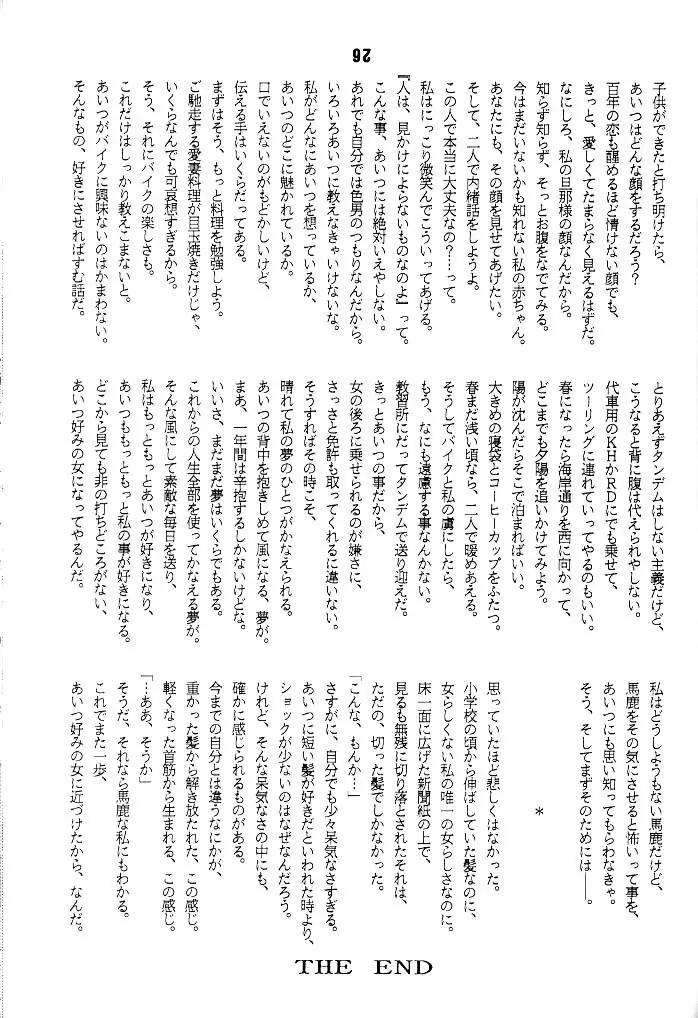 26
子供ができたと打ち明けたら、
あいつはどんな顔をするだろう?
百年の恋も醒めるほど情けない顔でも、
きっと、愛しくてたまらなく見えるはずだ。
なにしろ、私の旦那様の顔なんだから。
知らず知らず、そっとお腹をなでてみる。
今はまだいないかも知れない私の赤ちゃん。
あなたにも、その顔を見せてあげたい。
そして、二人で内緒話をしようよ。
この人で本当に大丈夫なの?……って。
私はにっこり微笑んでこういってあげる。
『人は、見かけによらないものなのよ』って。
こんな事、あいつには絶対いえやしない。
あれでも自分では色男のつもりなんだから。
いろいろあいつに教えなきゃいけないな。
私がどんなにあいつを想っているか、
あいつのどこに魅かれているか。
口でいえないのがもどかしいけど、
伝える手はいくらだってある。
まずはそう、もっと料理を勉強しよう。
ご馳走する愛妻料理が目玉焼きだけじゃ、
いくらなんでも可哀想すぎるから。
そう、それにバイクの楽しさも。
これだけはしっかり教えこまないと。
あいつがバイクに興味ないのはかまわない。
そんなもの、好きにさせればすむ話だ。
とりあえずタンデムはしない主義だけど、
こうなると背に腹は代えられやしない。
代車用のKHかRDにでも乗せて、
ツーリングに連れていってやるのもいい。
春になったら海岸通りを西に向かって、
どこまでも夕陽を追いかけてみよう。
陽が沈んだらそこで泊まればいい。
大きめの寝袋とコーヒーカップをふたつ。
春まだ浅い頃なら、二人で暖めあえる。
そうしてバイクと私の虜にしたら、
もう、なにも遠慮する事なんかない。
教習所にだってタンデムで送り迎えだ。
きっとあいつの事だから、
女の後ろに乗せられるのが嫌さに、
さっさと免許も取ってくれるに違いない。
そうすればその時こそ、
晴れて私の夢のひとつがかなえられる。
あいつの背中を抱きしめて風になる、夢が。
まあ、一年間は辛抱するしかないけどな。
いいさ、まだまだ夢はいくらでもある。
これからの人生全部を使ってかなえる夢が。
そんな風にして素敵な毎日を送り、
私はもっともっとあいつが好きになり、
あいつももっともっと私の事が好きになる。
どこから見ても非の打ちどころがない、
あいつ好みの女になってやるんだ。
私はどうしようもない馬鹿だけど、
馬鹿をその気にさせると怖いって事を、
あいつにも思い知ってもらわなきゃ。
そう、そしてまずそのためには――。
*
思っていたほど悲しくはなかった。
小学校の頃から伸ばしていた髪なのに、
女らしくない私の唯一の女らしさなのに。
床一面に広げた新聞紙の上で、
見るも無残に切り落とされたそれは、
ただの、切った髪でしかなかった。
「こんな、もんか…」
さすがに、自分でも少々呆気なさすぎる。
あいつに短い髪が好きだといわれた時より、
ショックが少ないのはなぜなんだろう。
けれど、そんな呆気なさの中にも、
確かに感じられるものがある。
今までの自分とは違うなにかが、
重かった髪から解き放たれた、この感じ。
軽くなった首筋から生まれる、この感じ。
「…ああ、そうか」
そうだ、それなら馬鹿な私にもわかる。
これでまた一歩、
あいつ好みの女に近づけたから、なんだ。
THE END